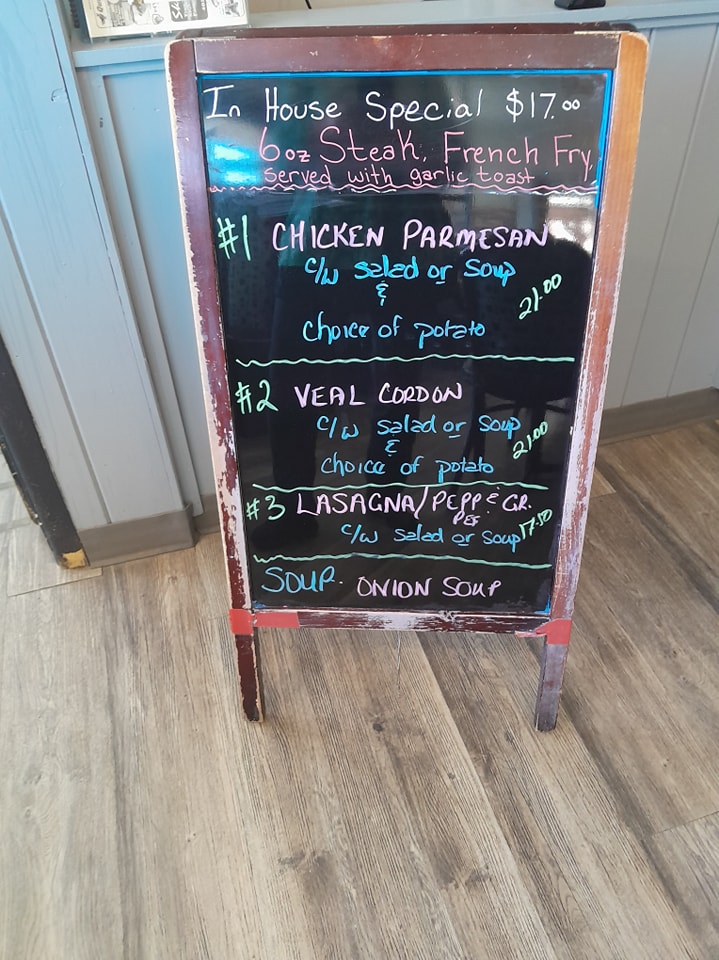 In House Special $17.00
6oz Steak, French Fry,
served with garlic toast
#1 CHICKEN PARMESAN
c/w salad or soup
&
21.00
choice of potato
#2 VEAL CORDON
c/w salad or soup
&
21.00
choice of potato
#3 LASAGNA/PEPP & GR.
c/w salad or soup 17.50
SOUP. ONION SOUP